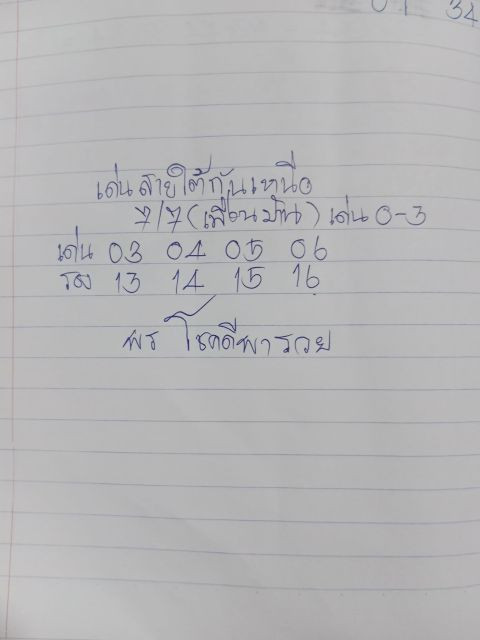 07 34
เด่นสายใต้กันเหนือ
7/7 (เพื่อนบ้าน) เด่น 0-3
เด่น 03 04 05 06
รอง 13 14 15 16
พร โชคดีพารวย